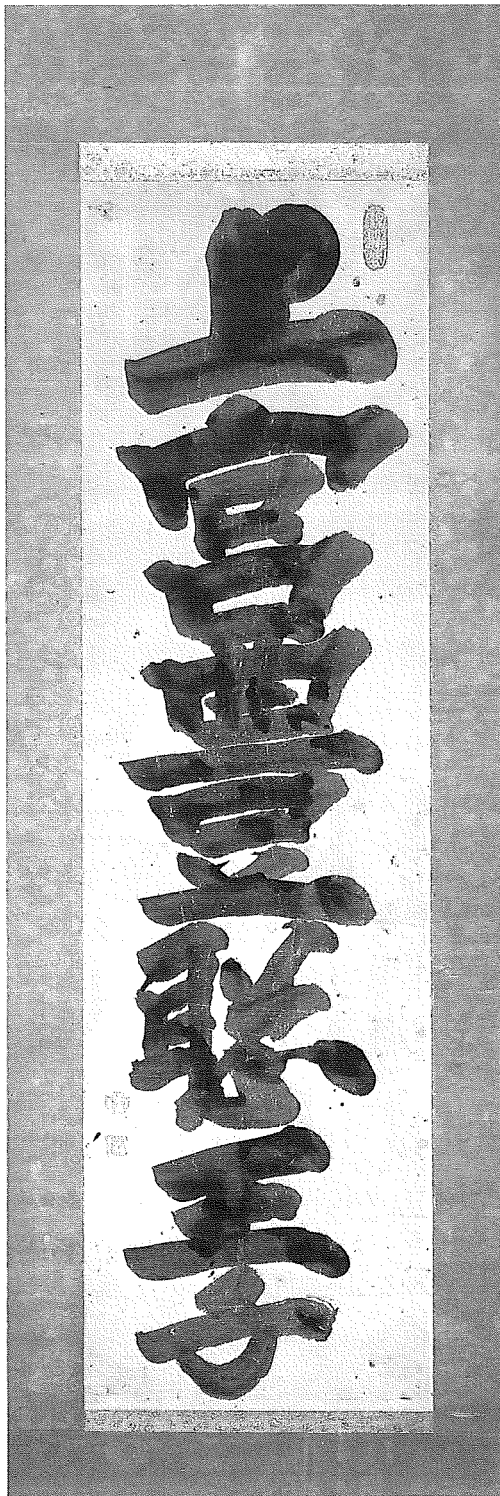 上宮豊聡王子